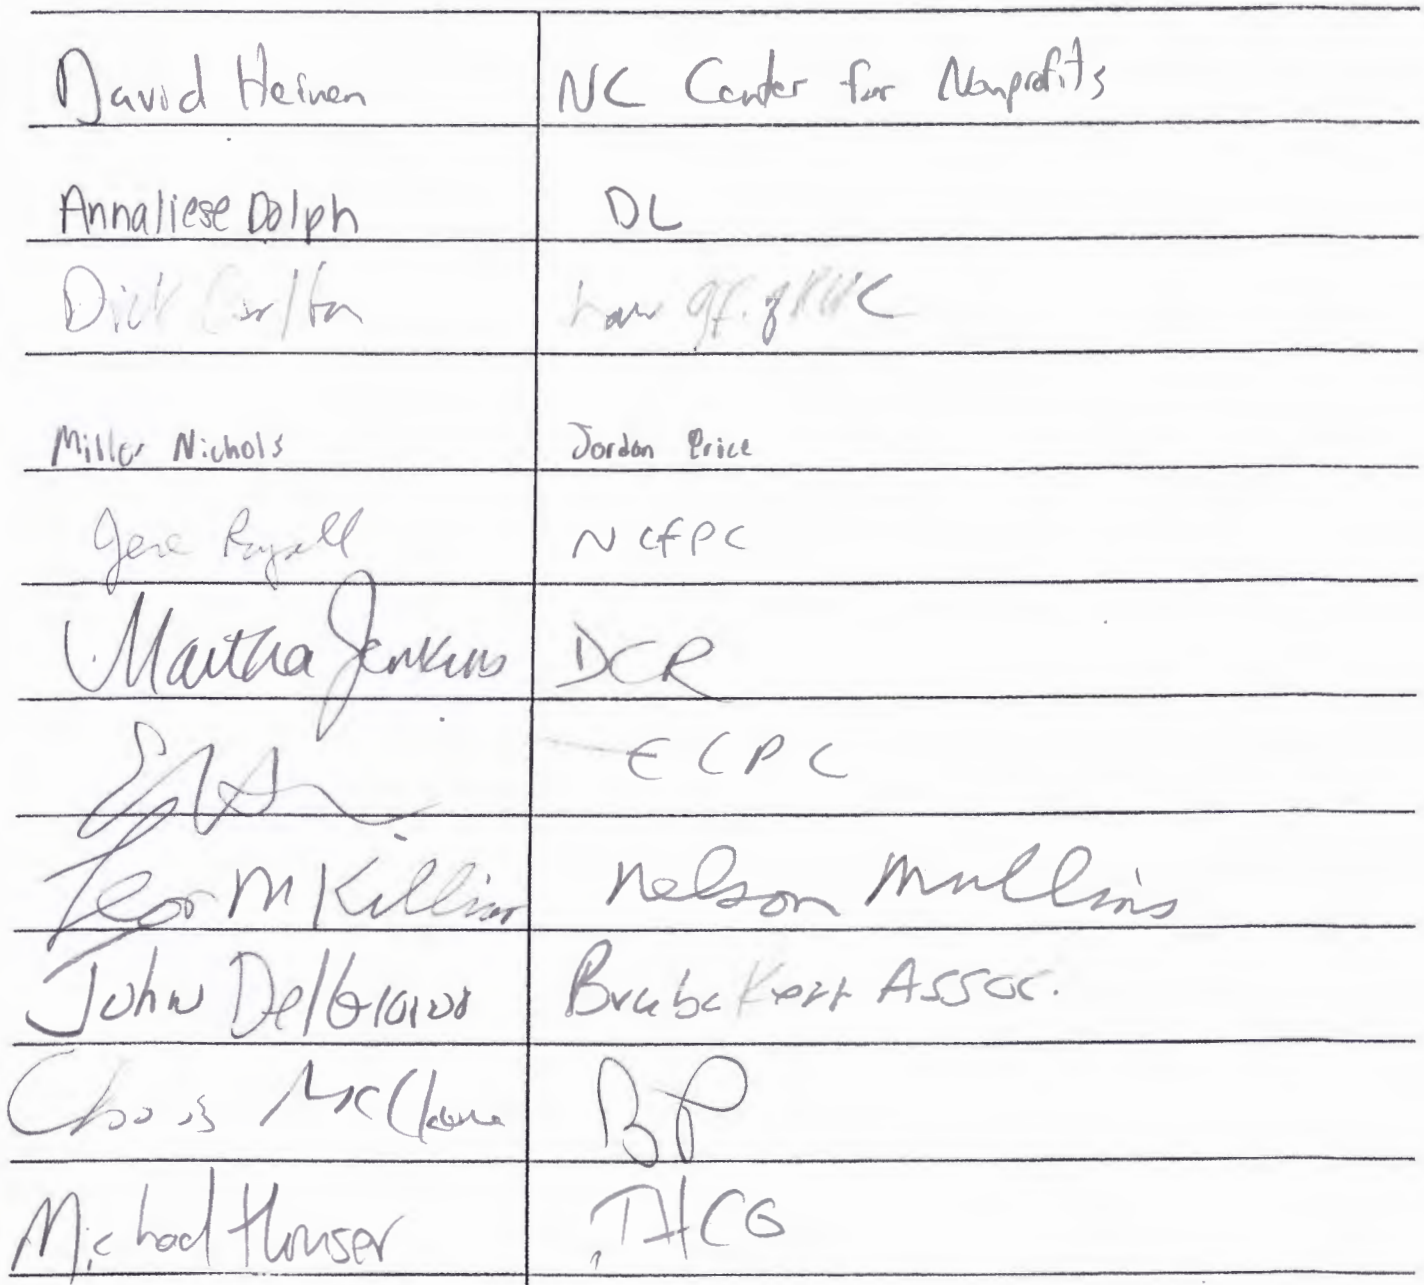 David Heinen NC Center for Nonprofits
Annaliese Dolph DL
Dick Carlton Law Off. of
Miller Nichols Jordan Price
NCFPC
Martha Jenkins DCR
ECPC
Killian Nelson Mullins
John Brubaker Assoc.
Chris BP
Michael Houser THCG